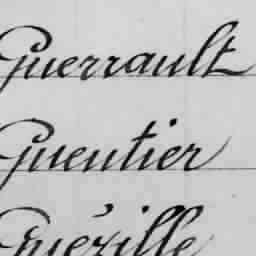 Guerrault
Guentier
Guéville